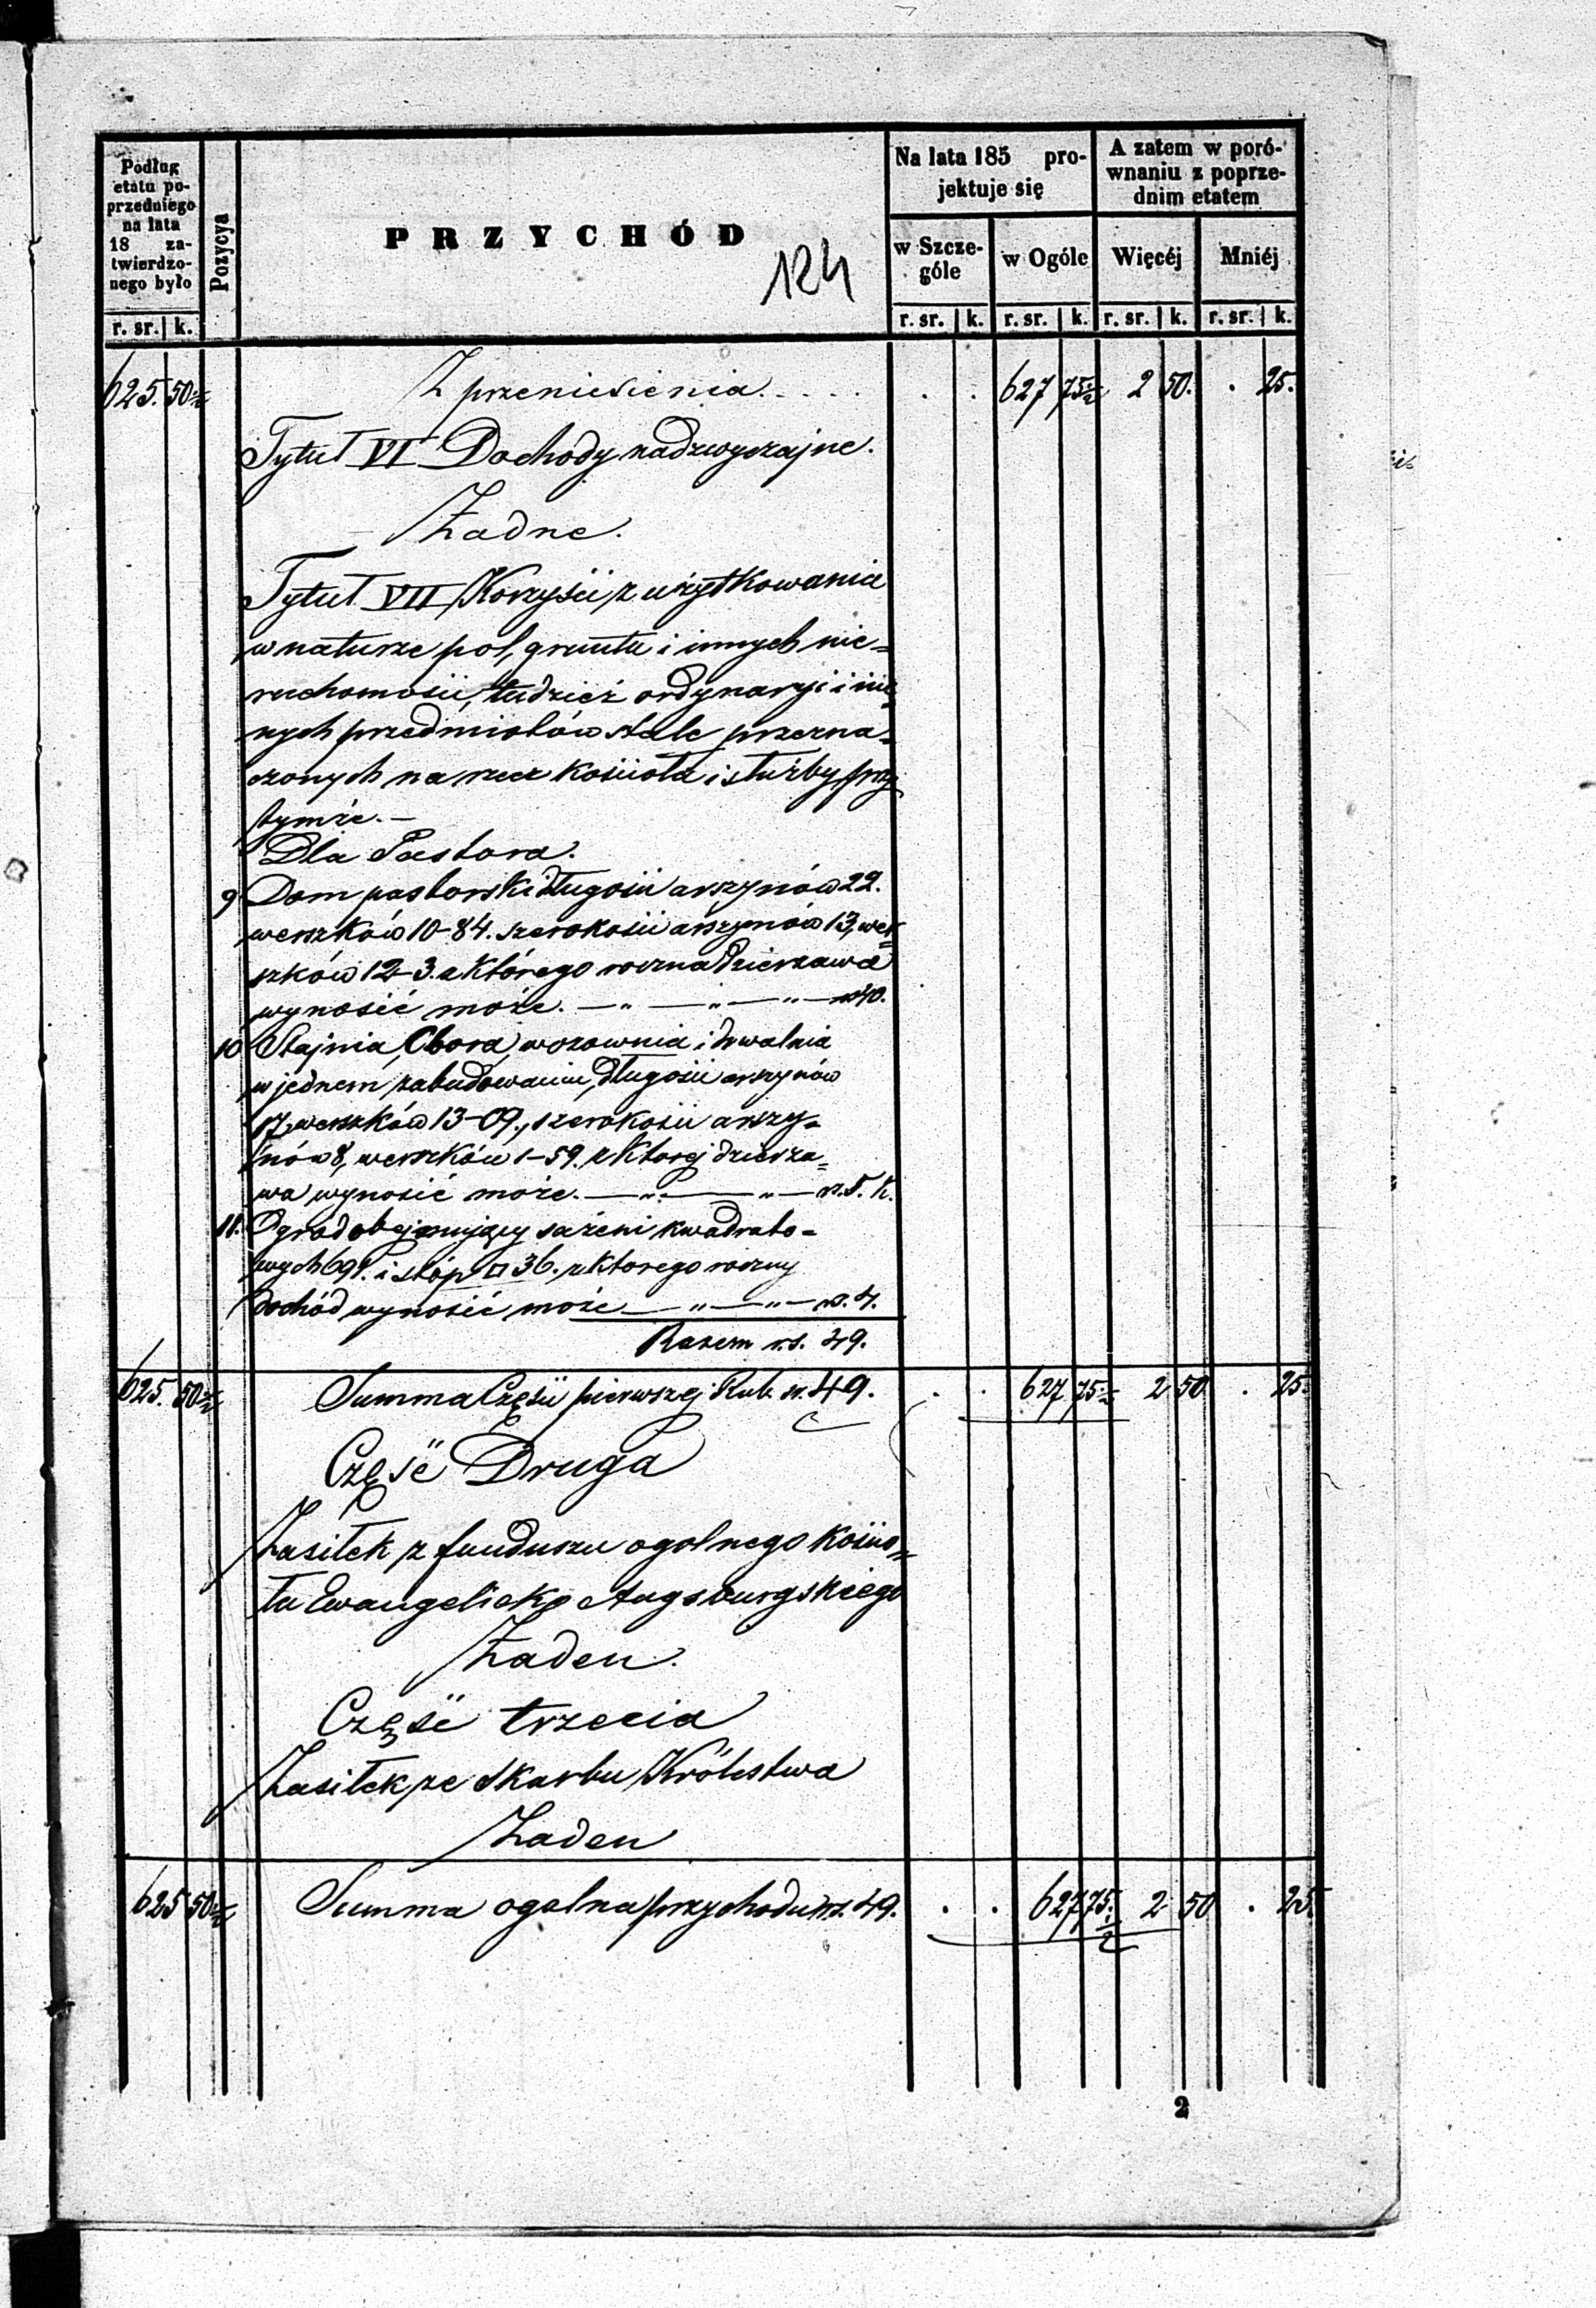 Podług
etatu po-
przedniego
na lata
18 za-
twierdzo-
nego było
Pozycya
PRZYCHÓD
124
Na lata 185 pro-
jektuje się
A zatem w poró-
wnaniu z poprze-
dnim etatem
w Szcze-
góle
w Ogóle
Więcéj
Mniéj
r. sr. k. r. sr. k. r. sr. k. r. sr. k. r. sr. k.
625. 50 1/2 Z przeniesienia. . . . . . . 627 75 1/2 2 50. . 25.
Tytuł VI Dochody nadzwyczajne.
Żadne.
Tytuł VII Korzyści z użytkowania
w naturze pol, gruntu i innych nie=
ruchomości, tudzież ordynaryi i in=
nych przedmiotów stale przezna=
czonych na rzecz kościoła i służby przy
tymże. —
Dla Pastora.
9 Dom pastorski długości arszynów 22.
werszków 10-84. szerokości arszynów 13, wer=
szków 12-3. z którego roczna dzierzawa
wynosić może. — " — " — " — rs 40.
10 Stajnia, Obora, wozownia i drwalnia
w jednem zabudowaniu, długości arszynów
17, werszków 13-09., szerokości arszy=
nów 8, werszków 1-59. z ktorej dzierza=
wa wynosić może. — " — " — rs. 5. k.
11. Ogród obejmujący sażeni kwadrato=
wych 691. i stóp □ 36. z ktorego roczny
dochód wynosić może — " — " — rs. 4.
Razem rs. 49.
625. 50 1/2 Summa Części pierwszej Rub. sr. 49. . . 627 75 1/2 2 50 . 25.
Część Druga
Zasiłek z funduszu ogolnego kościo=
ła Ewangelicko Augsburgskiego
Żaden.
Część trzecia
Zasiłek ze skarbu Królestwa
Żaden
625 50 1/2 Summa ogolna przychodu rs. 49. . . 627 75. 1/2 2 50 . 25.
2